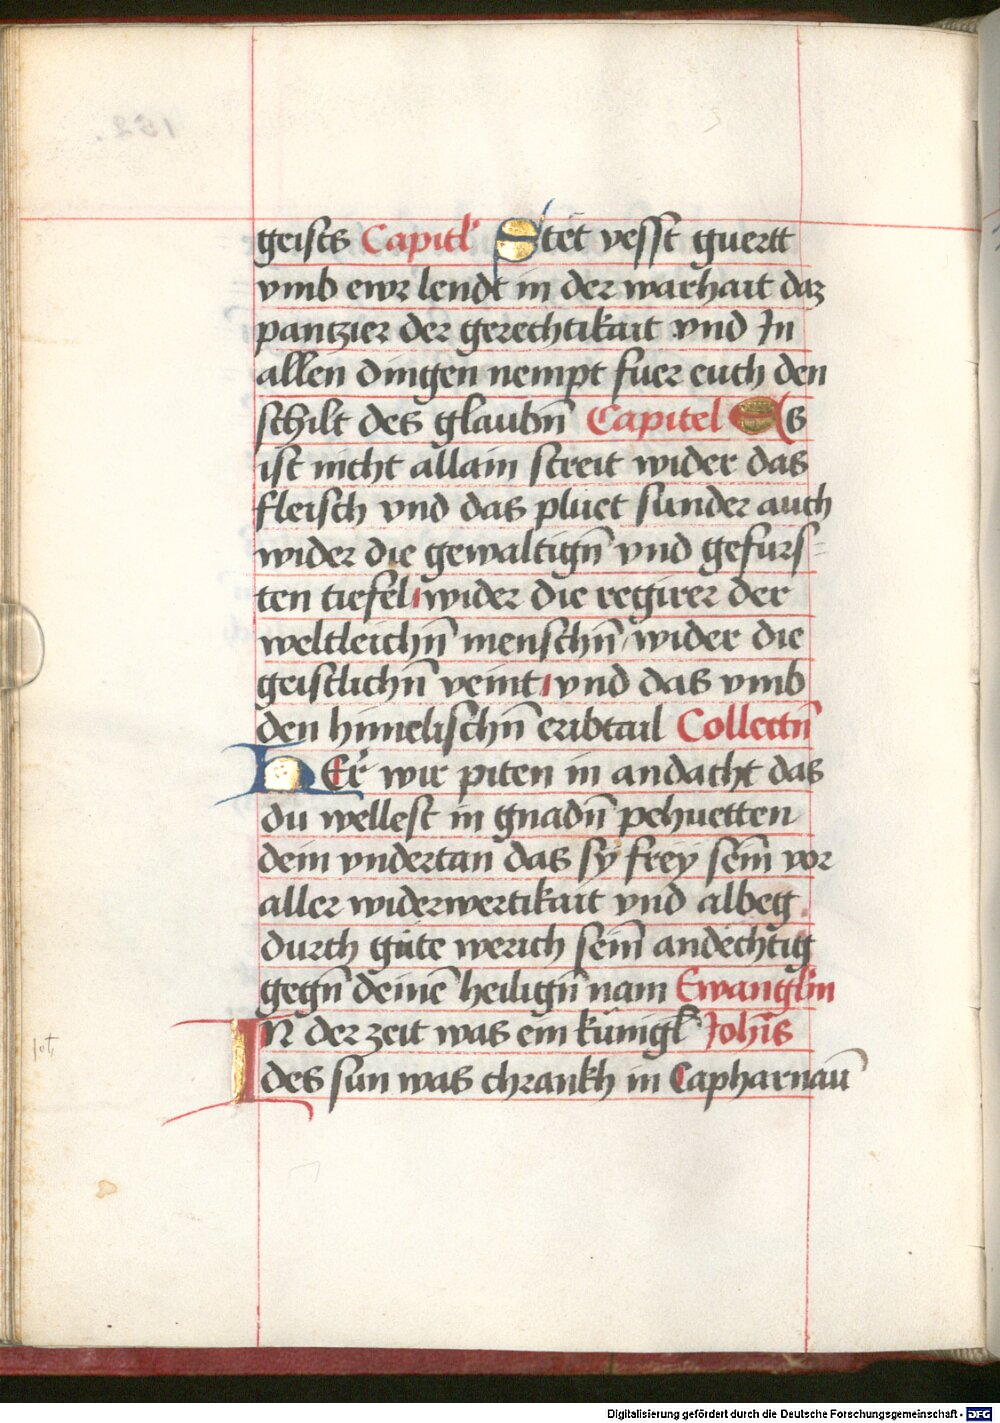 geists Capitl Stet vesst guertt
vmb ewr lendt in der warhait daz
pantzier der gerechtikait vnd In
allen dingen nempt fuer euch den
schilt des glaubn̄ Capitel Es
ist nicht allain streit wider das
fleisch vnd das pluet sunder auch
wider die gewaltign̄ vnd gefurs=
ten tiefel wider die regirer der
weltleichn̄ menschn̄ / wider die
geistlichn̄ veint vnd das vmb
den himelischn̄ eribtail Collectn̄
HEr wir piten in andacht das
du wellest in gnadn̄ pehuetten
dein vndertan das sy frey sein̄ vor
aller widerwertikait vnd albeg
durch güte werich sein̄ andechtig
gegn̄ deinē heilign̄ nam Ewanglin
IN der zeit was ein künigl Joh̄is
des sun was chrankh in Capharnaū
Digitalisierung gefördert durch die Deutsche Forschungsgemeinschaft - DFG